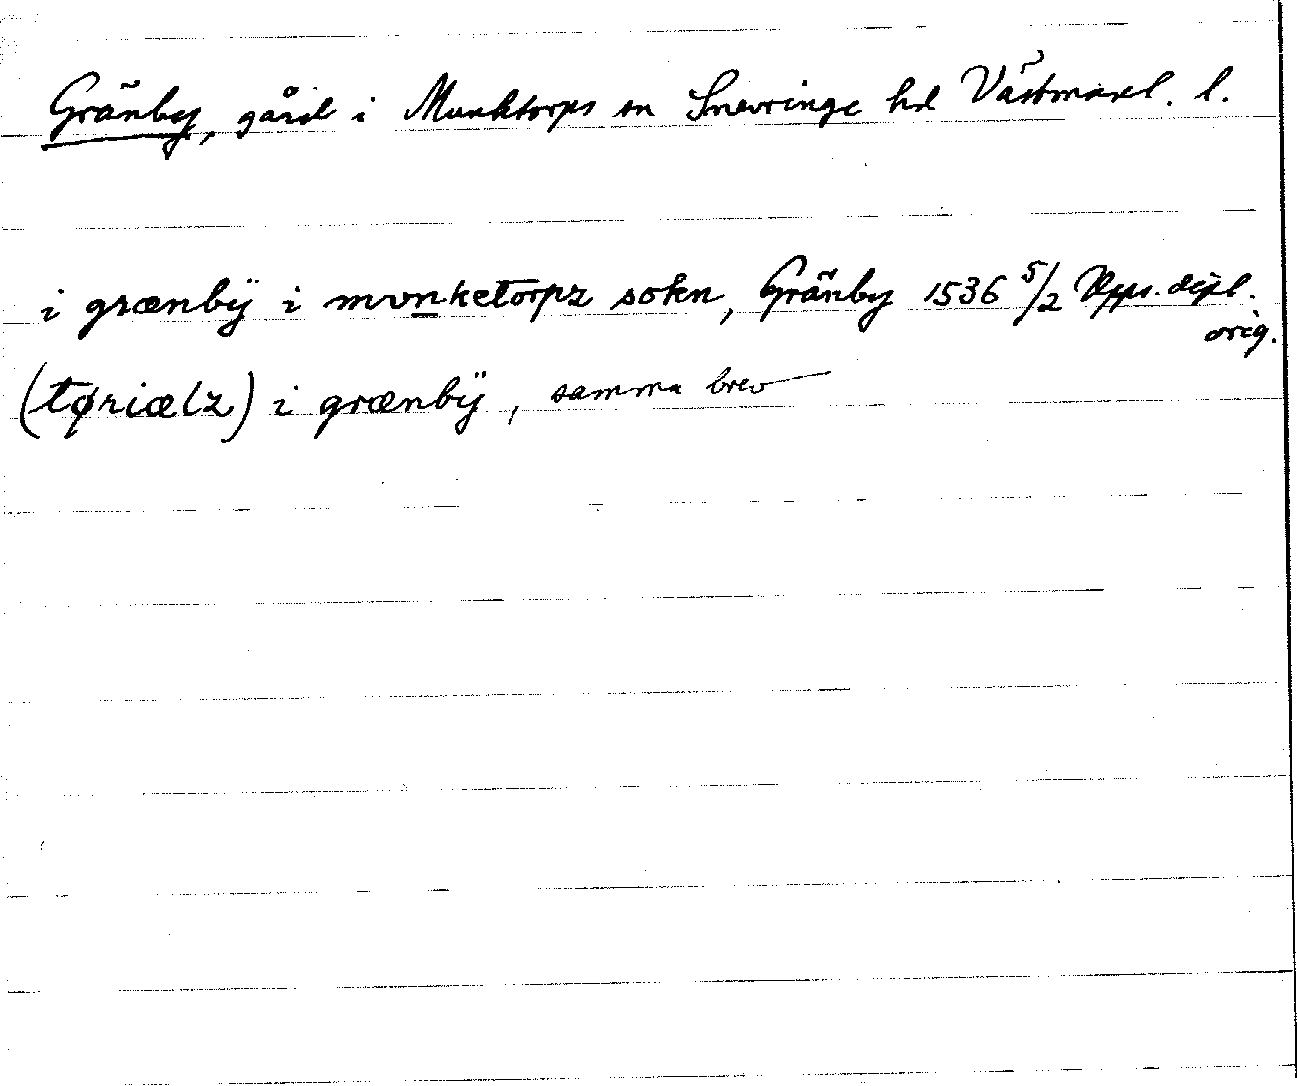 Gränby, gård i Munktorps sn Snevringe hd Västmanl. l.
i grænbÿ i mvnketorpz sokn, Gränby 1536 5/2 Upps. dipl.
orig.
(tøriælz) i grænbÿ, samma brev